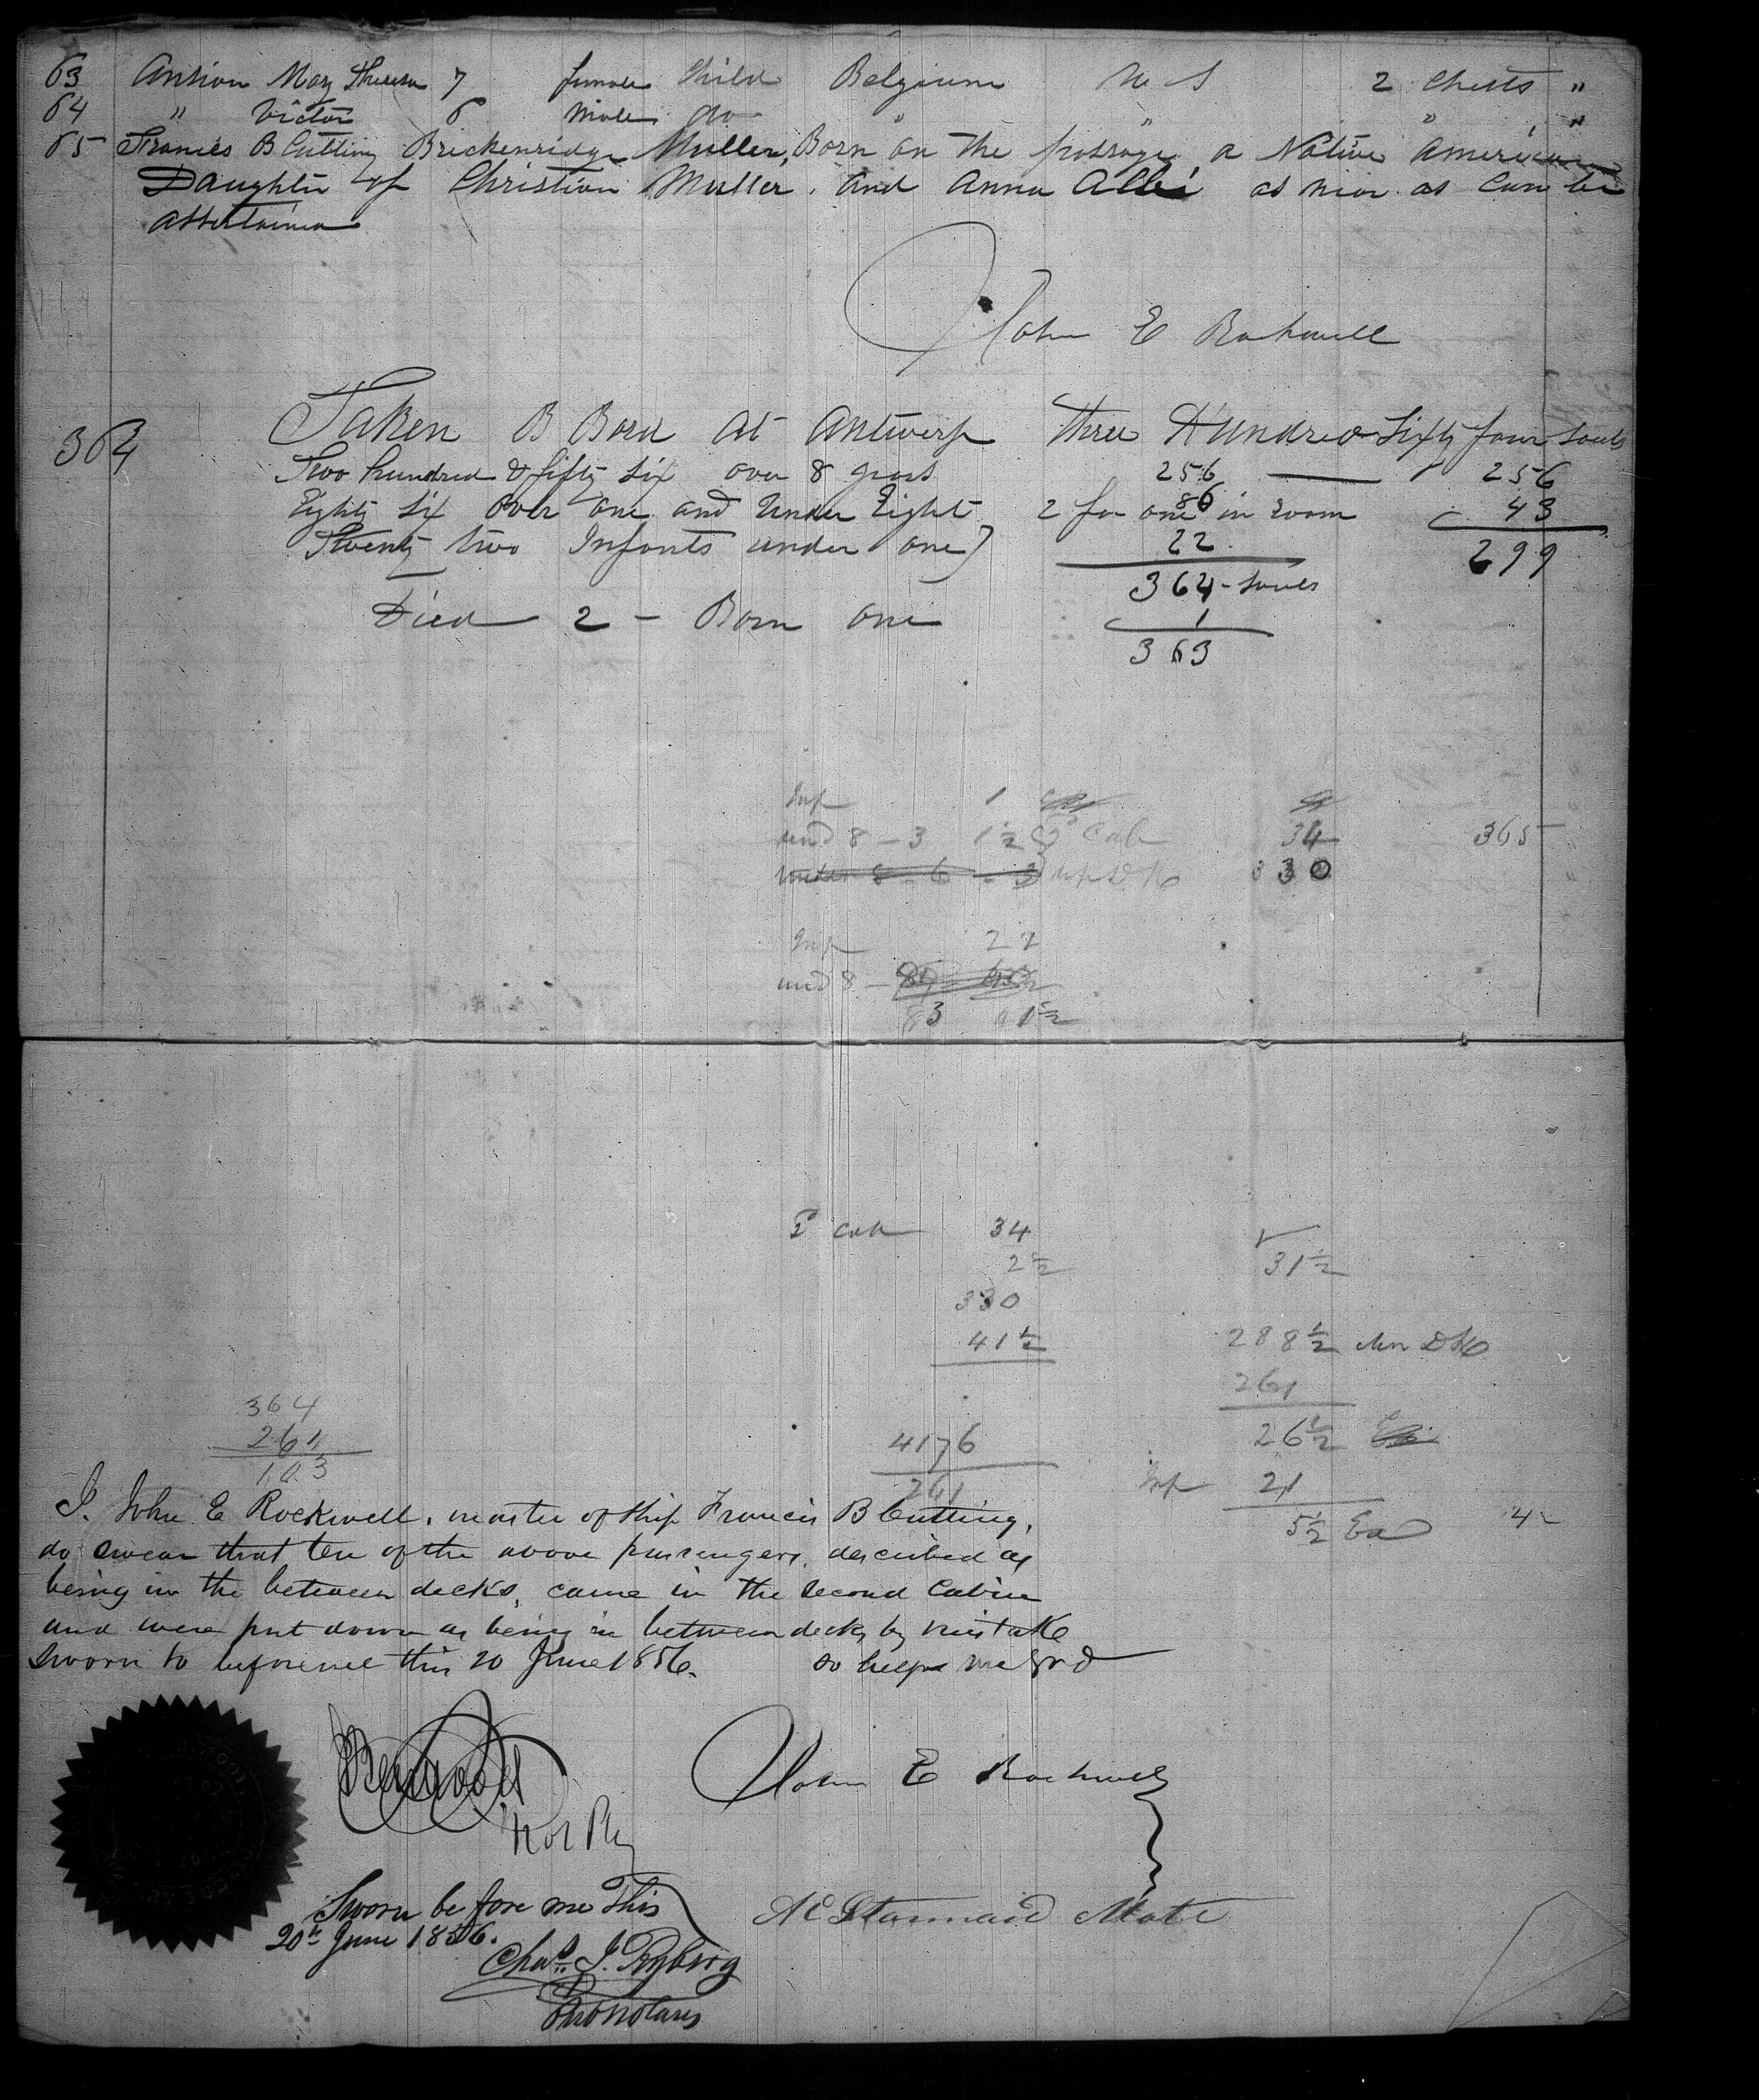 63 Ansion Mary Theresa 7 female Child Belgium U S 2 Chests "
64 " Victor 6 male do " " " "
65 Francis B Cutting Brickenridge Muller, Born on the passage a Native American
Daughter of Christian Muller. and Anna as near as can be
assertained
John E Rockwell
364 Taken B Bord at Antwerp Three Hundred Sixty four souls
Two hundred & fifty six over 8 years 256 256
Eighty Six over one and Under Eight 2 for one in room 86 43
Twenty two Infants under one 22 299
364 - souls
Died 2 - Born one 1
363
Inf 1
und 8 - 3 1½ 2d Cab 34 365
under 8 - 6 - 3 330
Inf 22
und 8 -
83 41½
2d cab 34 31½
2½
330
41½ 288½
261
364 26½
261 4176 Inf 21
103 261 5½
I. John E Rockwell, master of ship Francis B Cutting,
do swear that ten of the above passengers, described as
being in the between decks, came in the second Cabin
and were put down as being in between decks by mistake
Sworn to before me this 20 June 1856. so help me God
John E Rockwell
Not Pub
Sworn before me this
20th June 1856.
Stannard Mate
Chas. J.